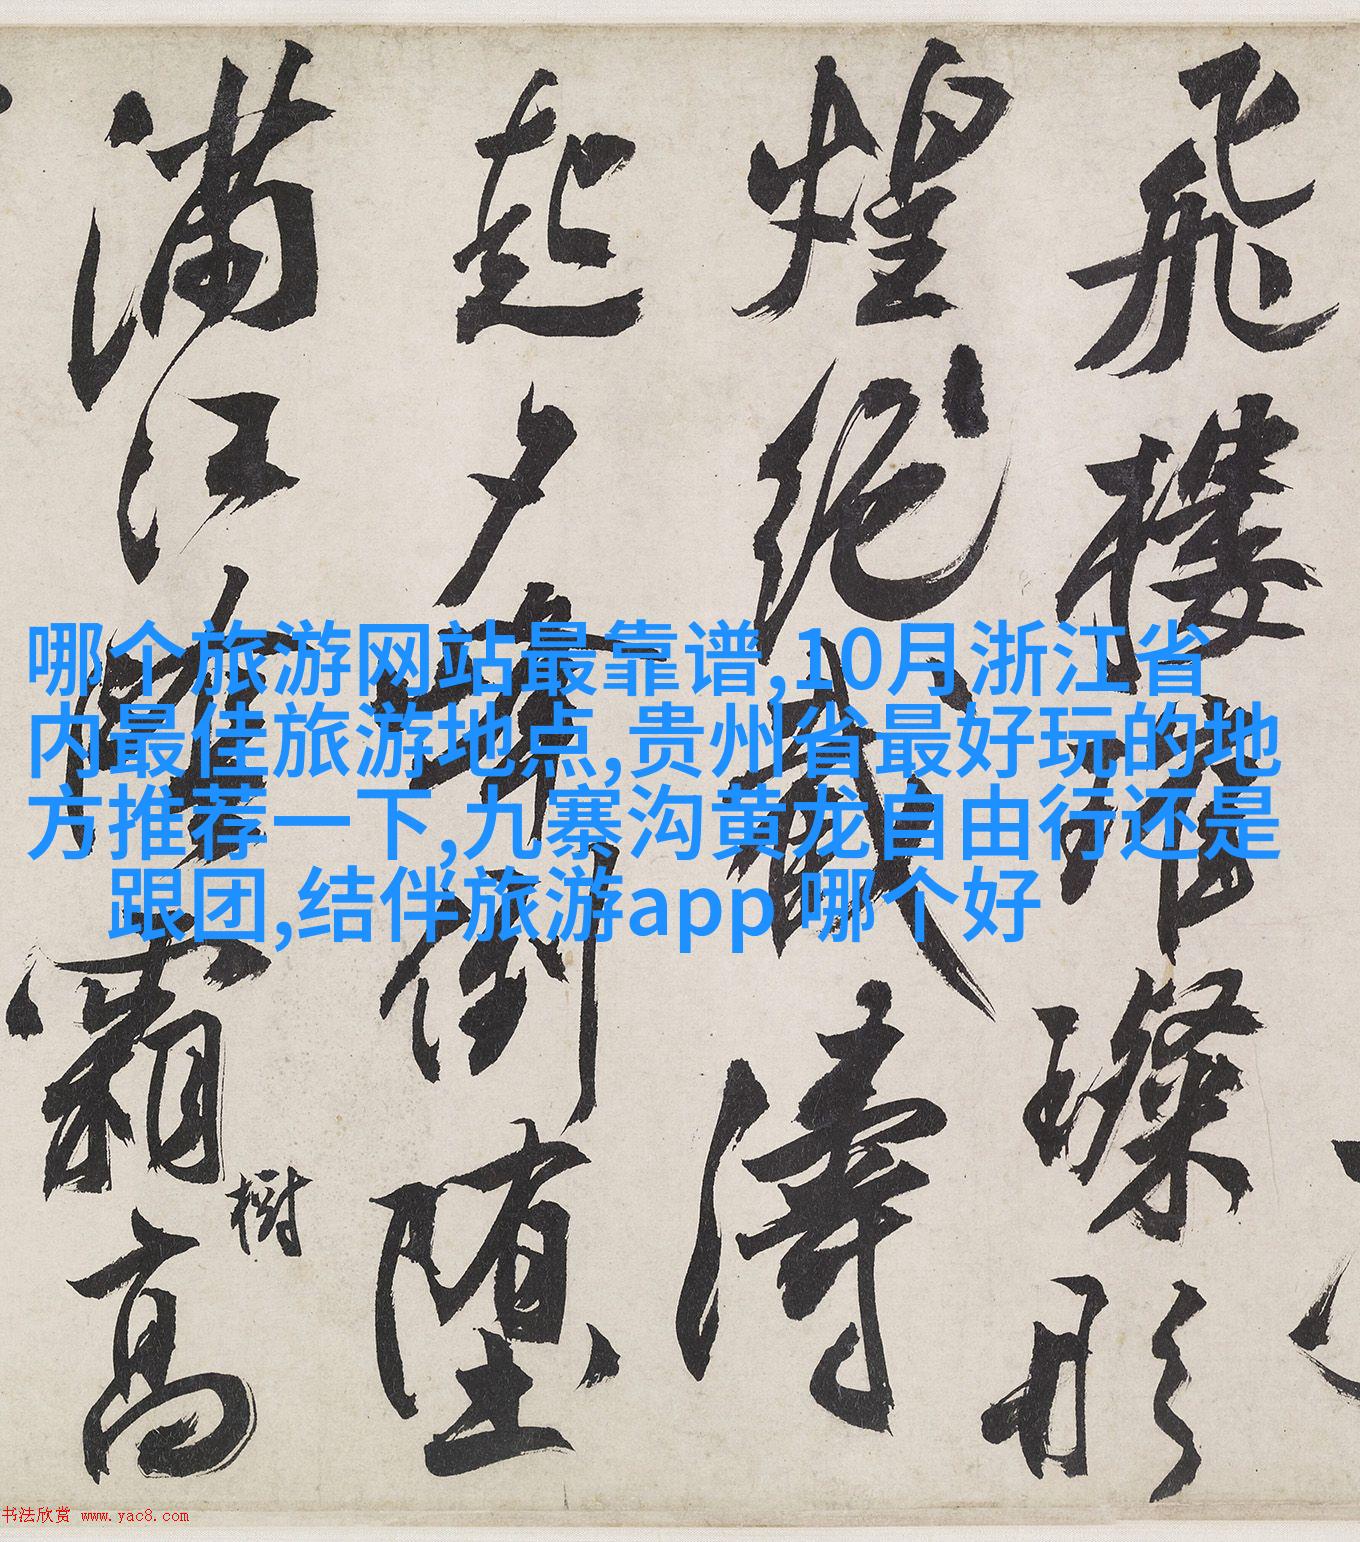 飛樓璨形
煌絕濤
起夕倒堕
滿江霜高
樹
哪个旅游网站最靠谱,10月浙江省
内最佳旅游地点,贵州省最好玩的地
方推荐一下,九寨沟黄龙自由行还是
跟团,结伴旅游app 哪个好
书法欣赏 www.yac8.com